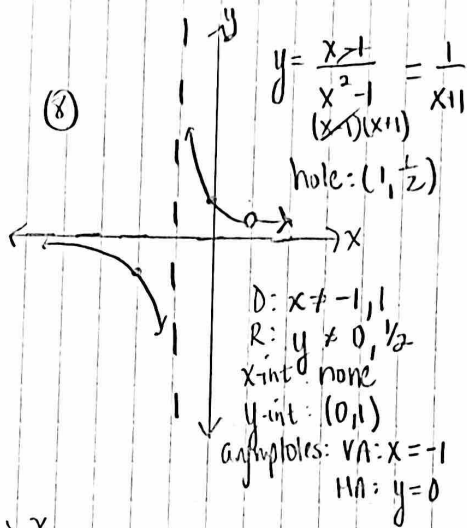 y
⑧
y = x-1 / x²-1 = 1 / x+1
(x-1)(x+1)
hole: (1, 1/2)
x
D: x ≠ -1, 1
R: y ≠ 0, 1/2
x-int: none
y-int: (0,1)
asymptotes: VA: x = -1
HA: y = 0
x